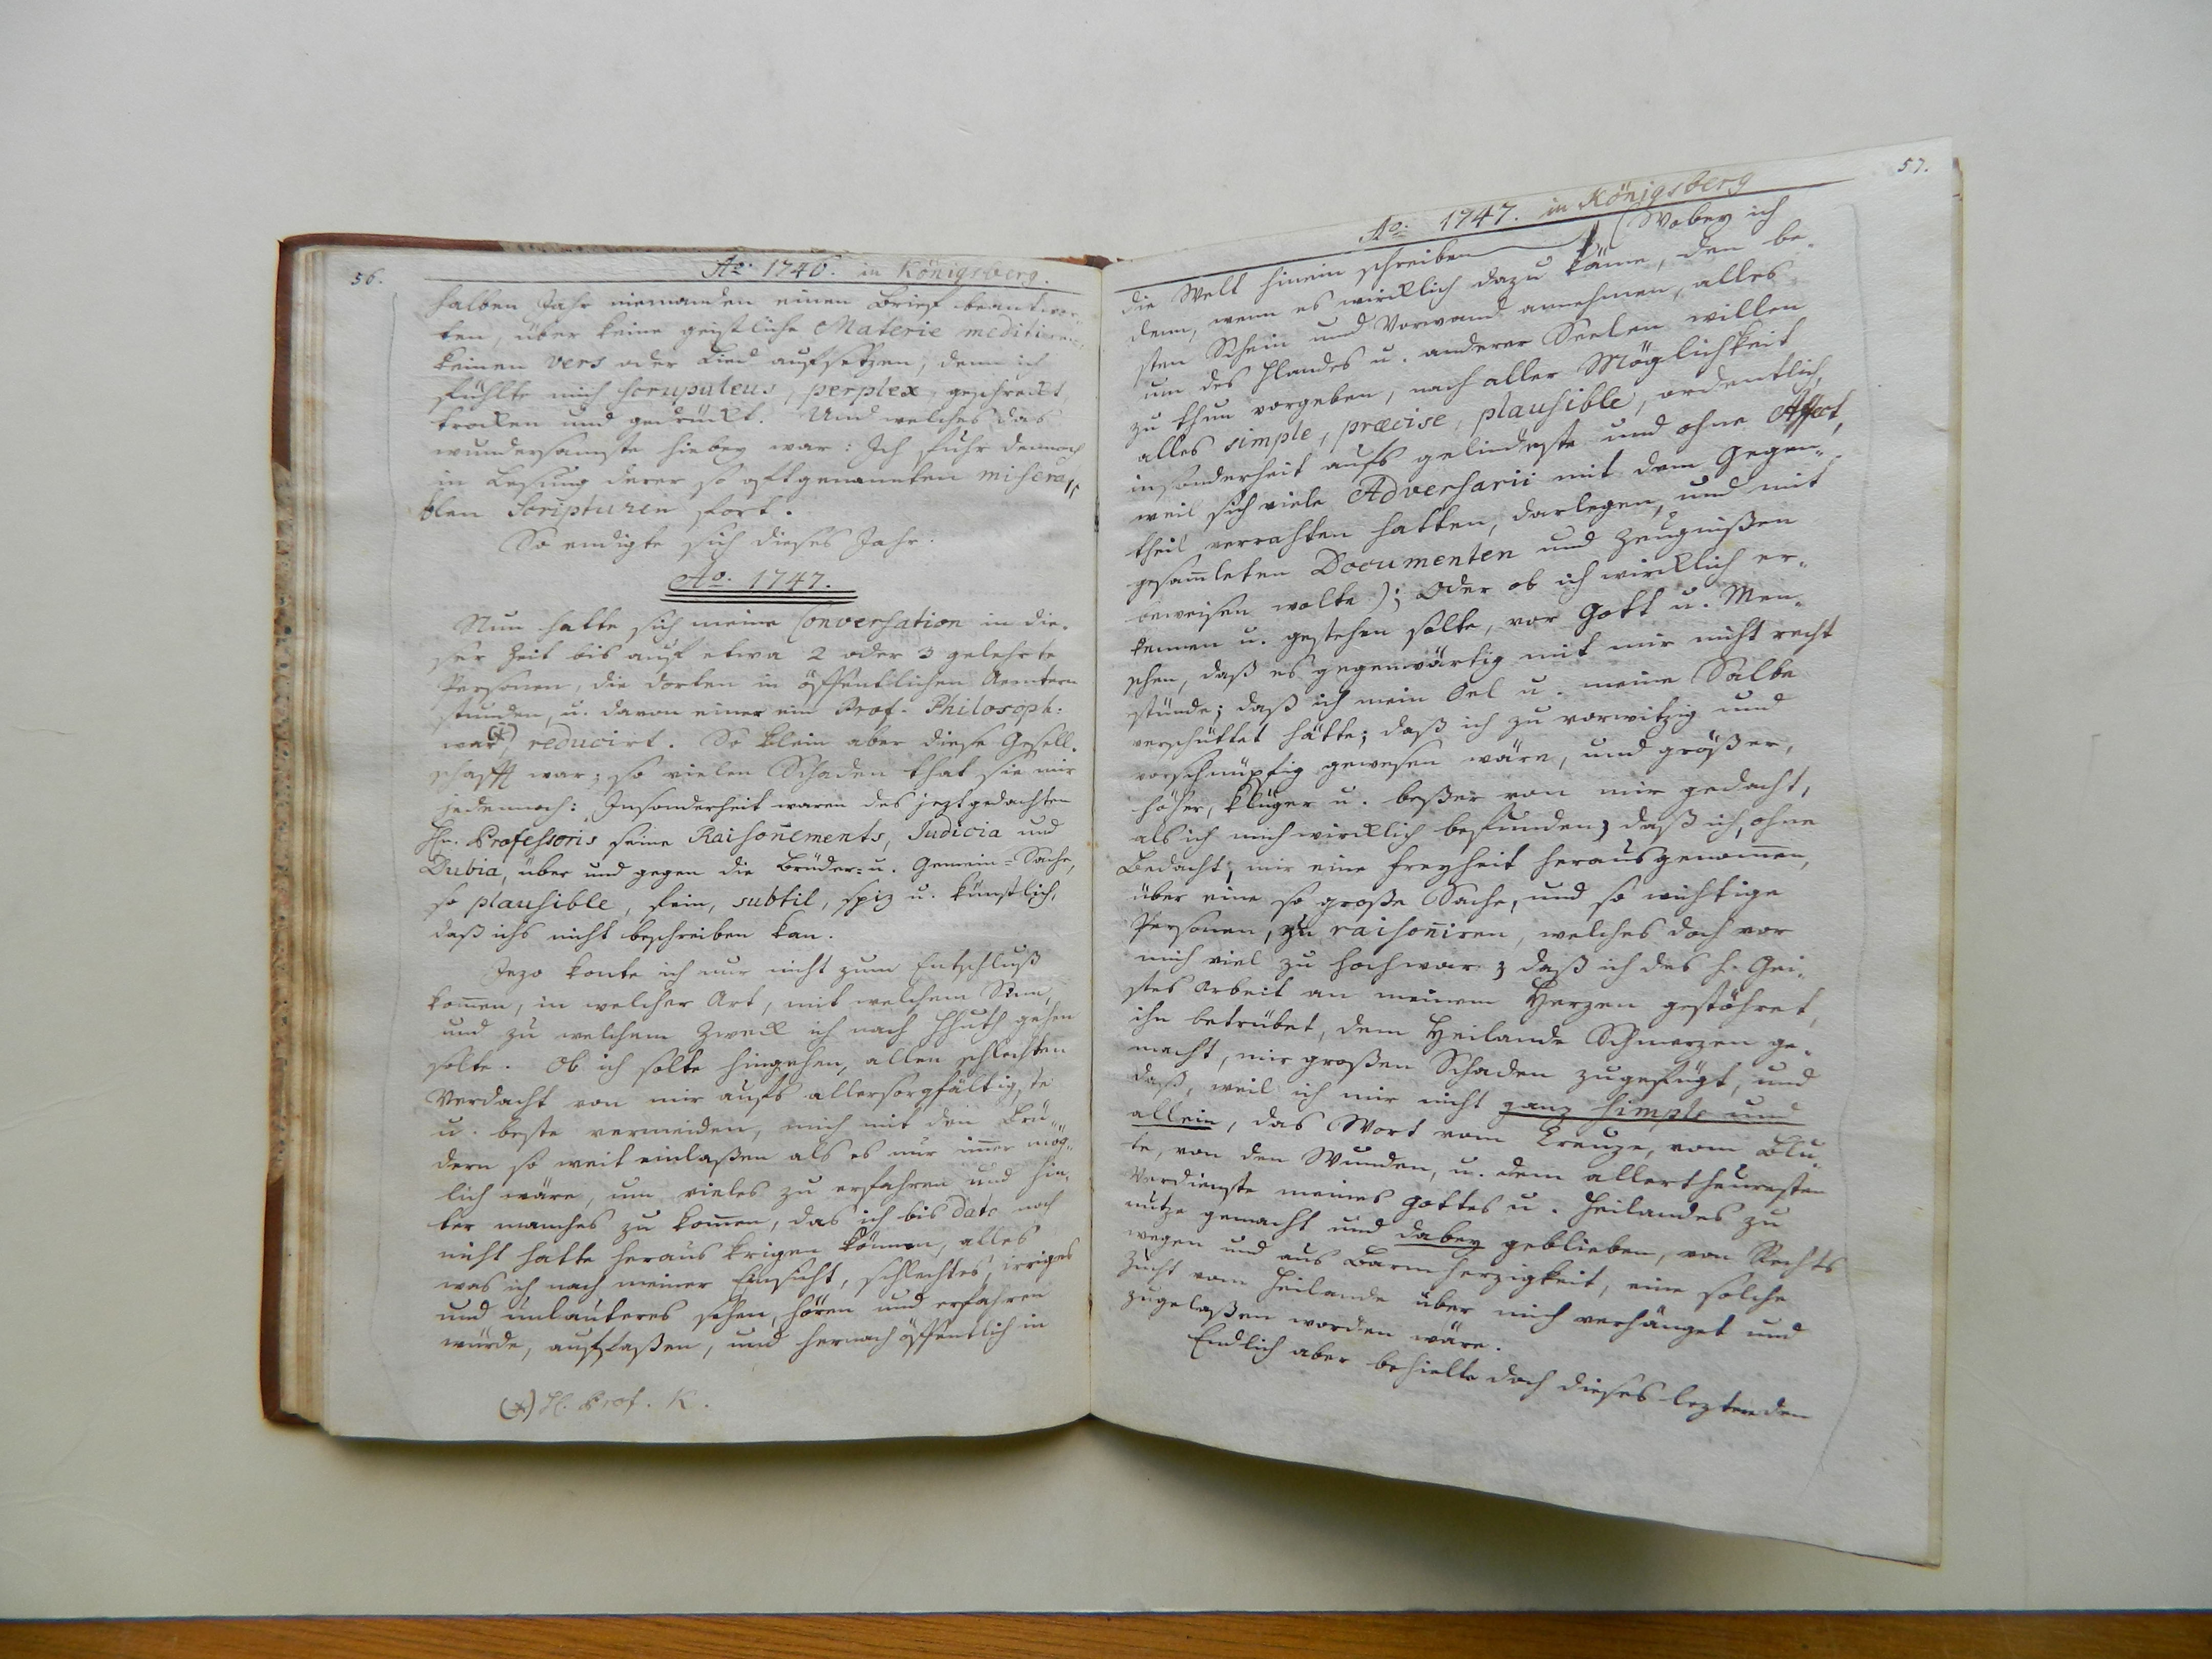 56.
Ao. 1746. in Königsberg.
halben Jahr niemanden einen Brief beantwor-
ten, über keine geistliche Materie meditiren,
keinen Vers oder Lied aufsetzen, denn ich
fühlte mich scrupuleus, perplex, geschreckt,
trocken und gedrückt. Und welches das
wundersamste hiebey war: Ich fuhr dennoch
in Lesung derer so oftgenannten misera-
blen Scripturen fort.
So endigte sich dieses Jahr.
Ao. 1747.
Nun hatte sich meine Conversation in die-
ser Zeit bis auf etwa 2 oder 3 gelehrte
Personen, die dorten in öffentlichen Aemtern
stunden, u. davon einer ein Prof. Philosoph.
war (*) reducirt. So klein aber diese Gesell-
schafft war; so vielen Schaden that sie mir
jedennoch: Insonderheit waren des jeztgedachten
Hn. Professoris seine Raisonements, Judicia und
Dubia, über und gegen die Brüder- u. Gemein-Sache,
so plausible, fein, subtil, spiz u. künstlich,
daß ichs nicht beschreiben kan.
Jezo konte ich nur nicht zum Entschluß
kommen, in welcher Art, mit welchem Sinn,
und zu welchem Zweck ich nach Hhuth gehen
solte. Ob ich solte hingehen, allen schlechten
Verdacht von mir aufs allersorgfältigste
u. beste vermeiden, mich mit den Brü-
dern so weit einlaßen als es nur immer mög-
lich wäre, um vieles zu erfahren und hin-
ter manches zu kommen, das ich bis dato noch
nicht hatte heraus krigen können, alles
was ich nach meiner Einsicht, schlechtes, irriges
und unlauteres sehen, hören und erfahren
würde, auffaßen, und hernach öffentlich in
(*) H. Prof. K.
57.
Ao. 1747. in Königsberg
die Welt hinein schreiben (Wobey ich
denn, wenn es wircklich dazu käme, den be-
sten Schein und Vorwand annehmen, alles
um des Hlandes u. anderer Seelen willen
zu thun vorgeben, nach aller Möglichkeit
alles simple, præcise, plausible, ordentlich,
insonderheit aufs gelindeste und ohne Affect,
weil sich viele Adversarii mit dem Gegen-
theil verrathen hatten, darlegen, und mit
gesammleten Documenten und Zeugnißen
beweisen wolte); Oder ob ich wircklich er-
kennen u. gestehen solte, vor Gott u. Men-
schen, daß es gegenwärtig mit mir nicht recht
stünde; daß ich mein Oel u. meine Salbe
verschüttet hätte; daß ich zu vorwitzig und
vorschnüppig gewesen wäre, und größer,
höher, klüger u. beßer von mir gedacht,
als ich mich wircklich befunden; daß ich, ohne
Bedacht, mir eine Freyheit herausgenommen,
über eine so große Sache, und so wichtige
Personen, zu raisonniren, welches doch vor
mich viel zu hoch war; daß ich des h. Gei-
stes Arbeit an meinem Herzen gestöhret,
ihn betrübet, dem Heilande Schmerzen ge-
macht, mir großen Schaden zugefügt, und
daß, weil ich mir nicht ganz simple und
allein, das Wort vom Creuze, vom Blu-
te, von den Wunden, u. dem allertheuresten
Verdienste meines Gottes u. Heilandes zu
nutze gemacht und dabey geblieben, von Rechts
wegen und aus Barmherzigkeit, eine solche
Zucht vom Heilande über mich verhänget und
zugelaßen worden wäre.
Endlich aber behielte doch dieses leztere den